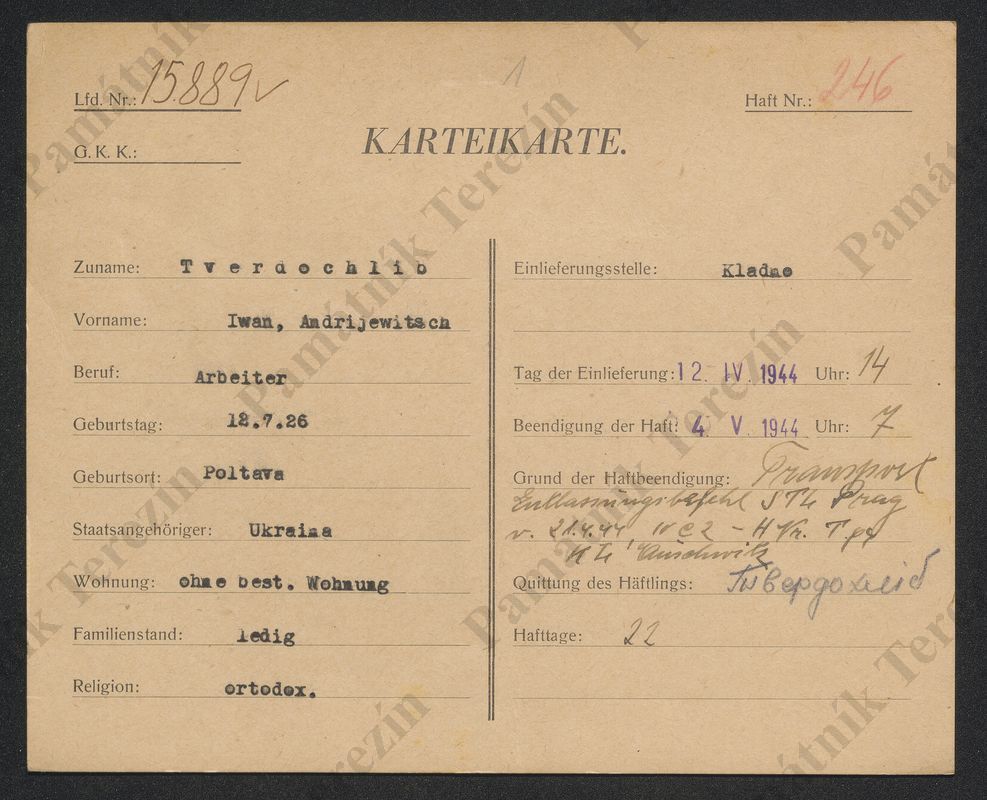 Lfd. Nr.: 15.889 v
1
Haft Nr.: 246
G. K. K.:
KARTEIKARTE.
Zuname: Tverdochlib
Vorname: Iwan, Andrijewitsch
Beruf: Arbeiter
Geburtstag: 12.7.26
Geburtsort: Poltava
Staatsangehöriger: Ukraina
Wohnung: ohne best. Wohnung
Familienstand: ledig
Religion: ortodox.
Einlieferungsstelle: Kladno
Tag der Einlieferung: 12. IV. 1944 Uhr: 14
Beendigung der Haft: 4. V. 1944 Uhr: 7
Grund der Haftbeendigung: Transport
Entlassungsbefehl STL Prag
v. 21.4.44, IV C 2 - H Nr. T
KL Auschwitz
Quittung des Häftlings:
Hafttage: 22
Památník Terezín